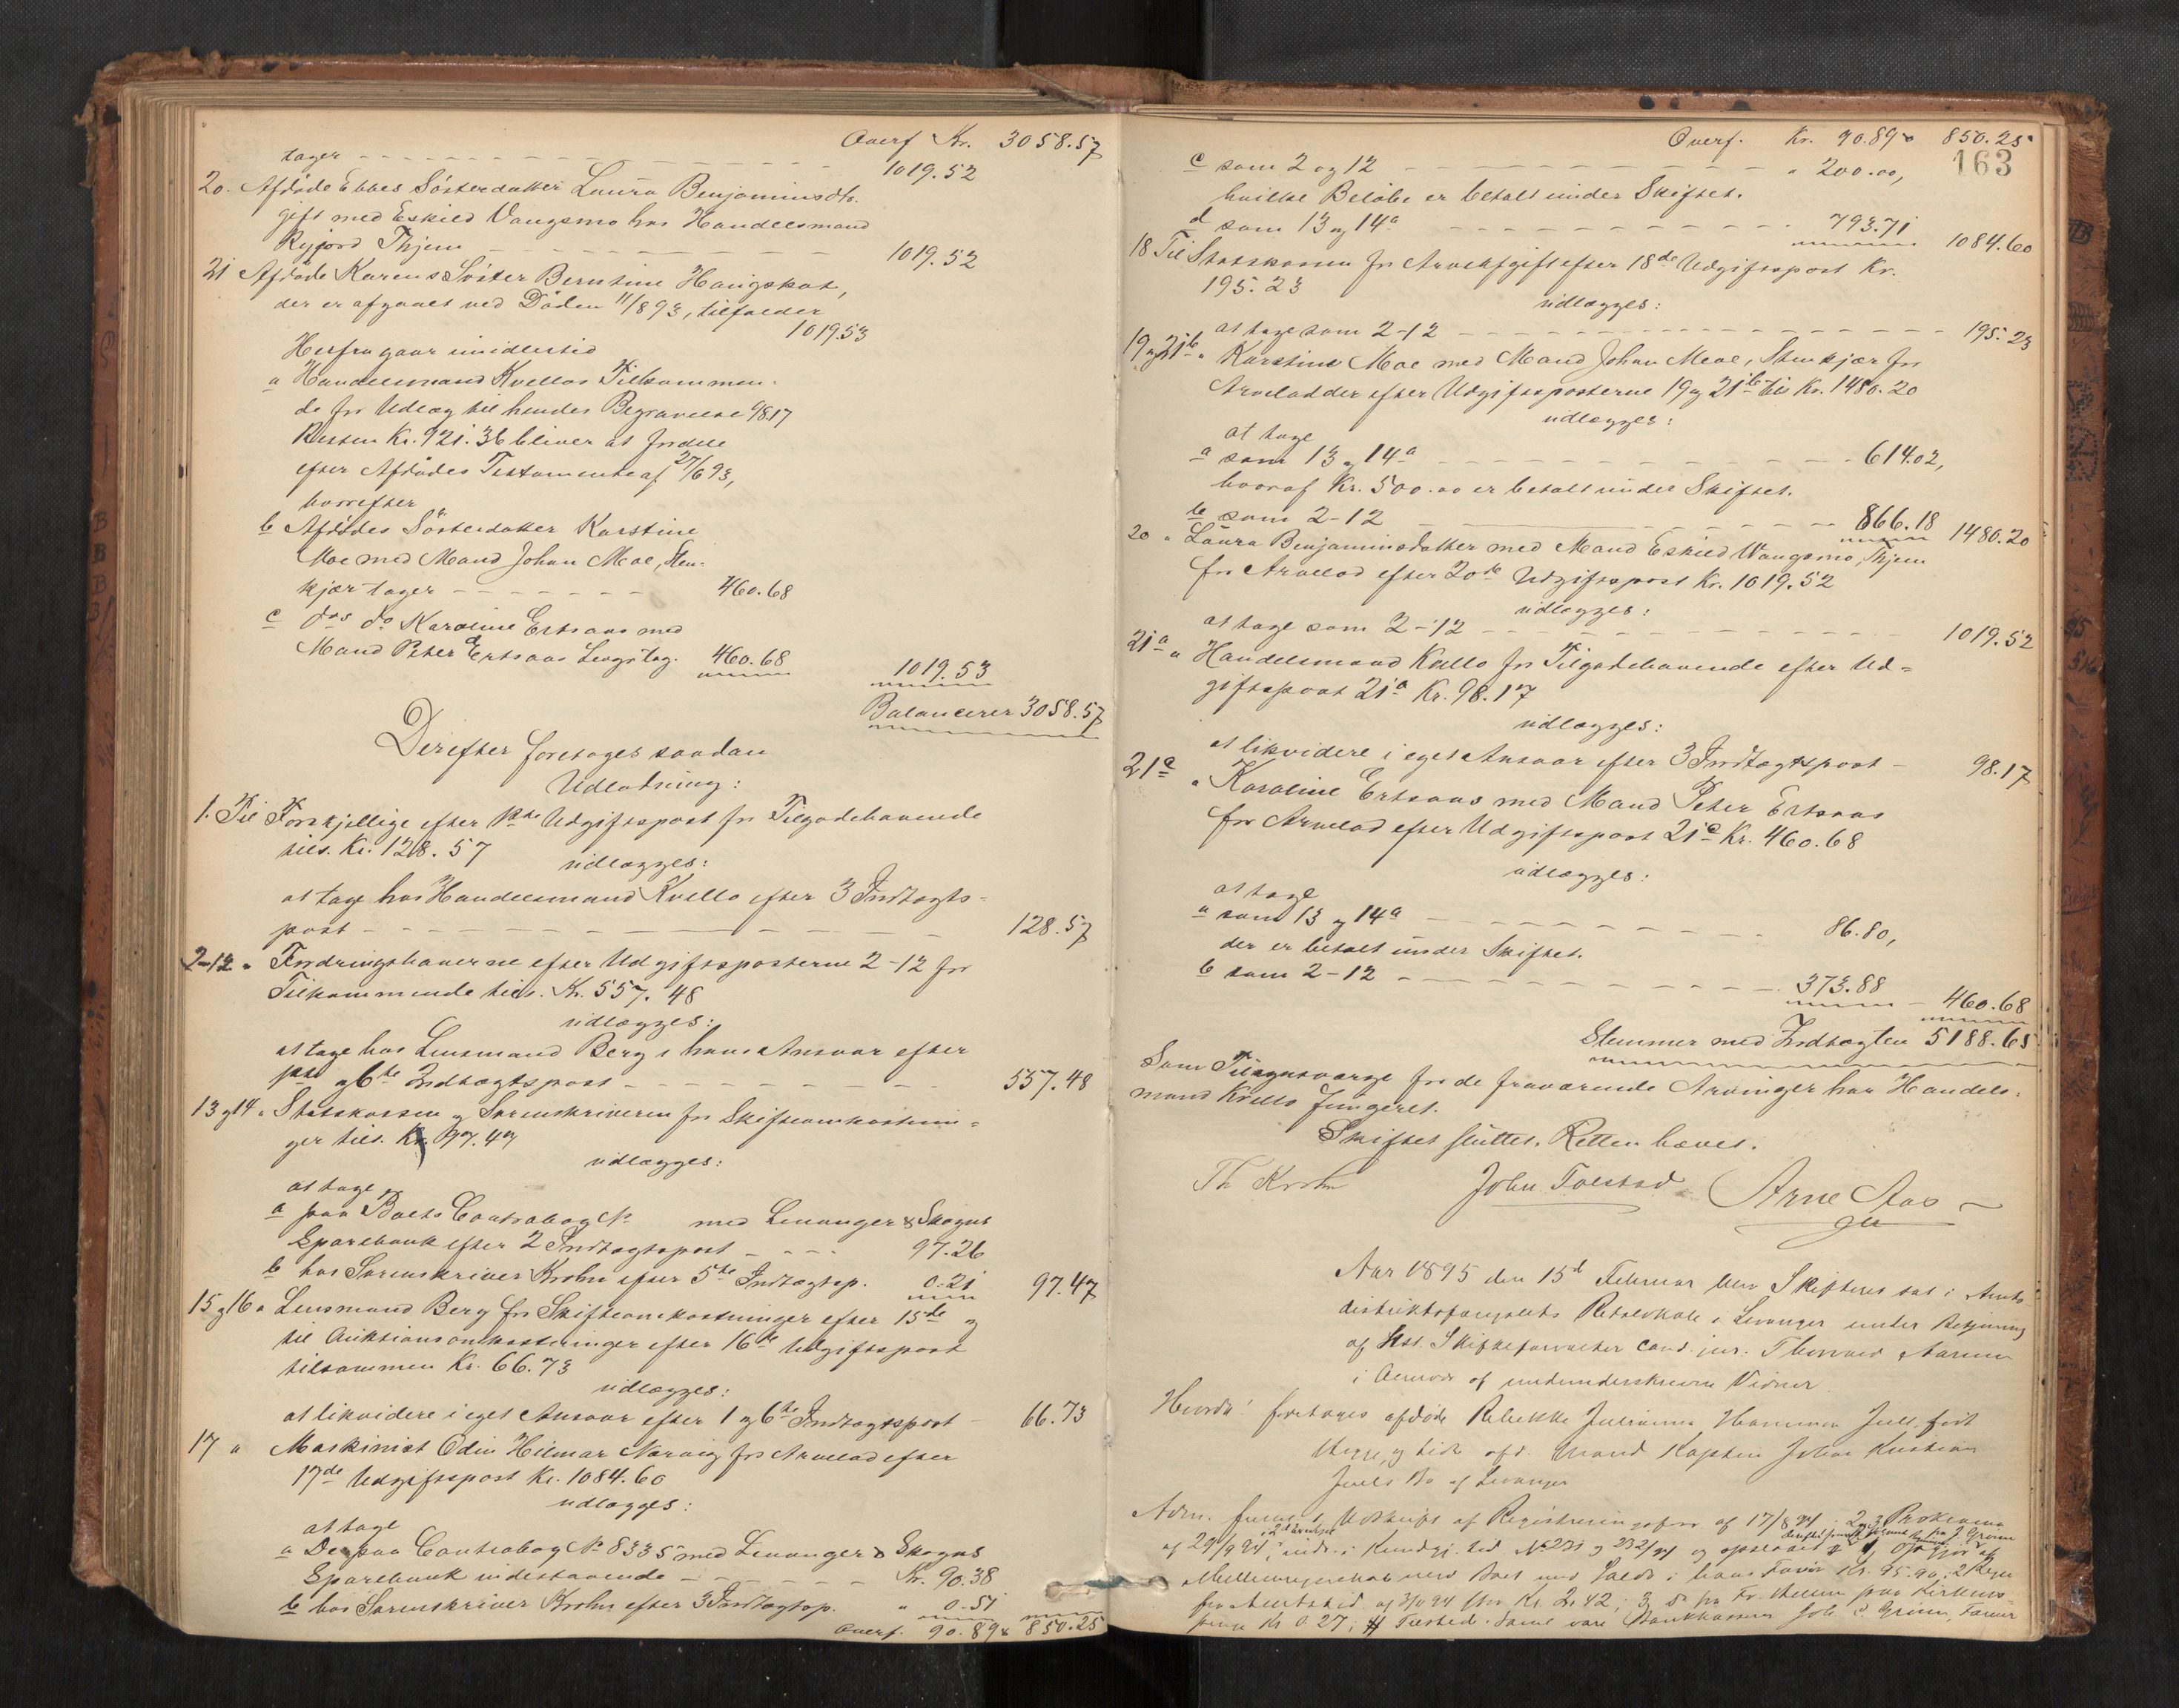 Overf Kr. 3058.57
tager - - - 1019.52
20. Afdöde Ebbes Sösterdatter Laura Benjaminsdtr.
gift med Eskild Vangsmo hos Handelsmand
Ryjord Thjem - - - 1019.52
21 Afdöde Karens Söster Berntine Haugskot,
der er afgaaet ved Döden 11/8 93, tilfalder
1019.53
Herfra gaar imidlertid
a Handelsmand Kvellos Tilkommen-
de for Udlæg til hendes Begravelse 98.17
Resten Kr. 921.36 bliver at fordele
efter Afdödes Testamente af 27/6 93,
hvorefter
b Afdödes Sösterdatter Karstine
Moe med Mand Johan Moe, Sten-
kjær tager - - - 460.68
c dos do Karoline Ertsaas med
Mand Peter Ertsaas Levgstag. 460.68 1019.53
Balancerer 3058.57
Derefter foretages saadan
Udlodning:
1. Til Forskjellige efter 1ste Udgiftspost for Tilgodehavende
tils. Kr. 128.57 udlægges:
at tage hos Handelsmand Kvello efter 3 Indtægts-
post - - - 128.57
2-12 " Fordringshaverne efter Udgiftsposterne 2-12 for
Tilkommende tils. Kr. 557.48
udlægges:
at tage hos Lensmand Berg i hans Ansvar efter
1ste og 6te Indtægtspost - - - 557.48
13 og 14 " Statskassen og Sorenskriveren for Skifteomkostnin-
ger tils. Kr. 97.47
udlægges:
at tage
a paa Boets Contrabog No med Levanger & Skogns
Sparebank efter 2 Indtægtspost - - - 97.26
b hos Sorenskriver Krohn efter 5te Indtægtsp. 0.21 97.47
15 og 16 " Lensmand Berg for Skifteomkostninger efter 15de og
til Auktionsomkostninger efter 16de Udgiftspost
tilsammen Kr. 66.73
udlægges:
at likvidere i eget Ansvar efter 1 og 6te Indtægtspost - 66.73
17 " Maskinist Odin Hilmar Norvig for Arvelod efter
17de Udgiftspost Kr. 1084.60
udlægges:
at tage
a De paa Contrabog No 8335 med Levanger & Skogns
Sparebank indestaaende - - - Kr. 90.38
b hos Sorenskriver Krohn efter 3 Indtægtsp. " 0.51
Overf. 90.89 850.25
Overf. Kr. 90.89 850.25
163
c som 2 og 12 - - - " 200.00,
hvilke Beløbe er betalt under Skiftet.
d som 13 og 14a - - - 793.71 1084.60
18 Til Statskassen for Arveafgift efter 18de Udgiftspost Kr.
195.23
udlægges:
at tage som 2-12 - - - 195.23
19 og 21b " Karstine Moe med Mand Johan Moe, Stenkjær for
Arvelodder efter Udgiftsposterne 19 og 21b tils Kr. 1480.20
udlægges:
at tage
a som 13 og 14a - - - 614.02,
hvoraf Kr. 500.00 er betalt under Skiftet.
b som 2-12 - - - 866.18 1480.20
20 " Laura Benjaminsdatter med Mand Eskild Wangsmo, Thjem
for Arvelod efter 20de Udgiftspost Kr. 1019.52
udlægges:
at tage som 2-12 - - - 1019.52
21a " Handelsmand Kvello for Tilgodehavende efter Ud-
giftspost 21a Kr. 98.17
udlægges:
at likvidere i eget Ansvar efter 3 Indtægtspost - 98.17
21c " Karoline Ertsaas med Mand Peter Ertsaas
for Arvelod efter Udgiftspost 21c Kr. 460.68
udlægges:
at tage
a som 13 og 14a - - - 86.80,
der er betalt under Skiftet.
b som 2-12 - - - 373.88 - 460.68
Stemmer med Indtægten 5188.65
Som Tilsynsværge for de fraværende Arvinger har Handels-
mand Kvello fungeret.
Skiftet sluttet. Retten hævet.
Th Krohn John Tolstad Arne Aas
Aar 1895 den 15de Februar blev Skifteret sat i Amts
distriktsfængslets Retslokale i Levanger under Betjening
af kst. Skifteforvalter cand. jur. Thorvald Aarum
i Overvær af medunderskrevne Vidner.
Hvorda: foretoges afdöde Rebekka Julianne Hammer Juell, född
og tidl. afd. Mand Kaptein Johan Kristian
Juells Bo af Levanger
Adm. freml. 1, Udskrift af Registreringsforr. af 17/8 94; 2, Proklama
af 29/9 94, indr. i Kundgj. tid. No 231 og 232/94 og opslaaet
Mellemregnskab med Boet med Saldo i hans Favør Kr. 95.90; 2 Regn
for Avertskid af 94 stor Kr. 2.42; 3, do fra Fr. paa Kirkens-
penge Kr 0.27; Tilsted. Samt vare Bankkasserer